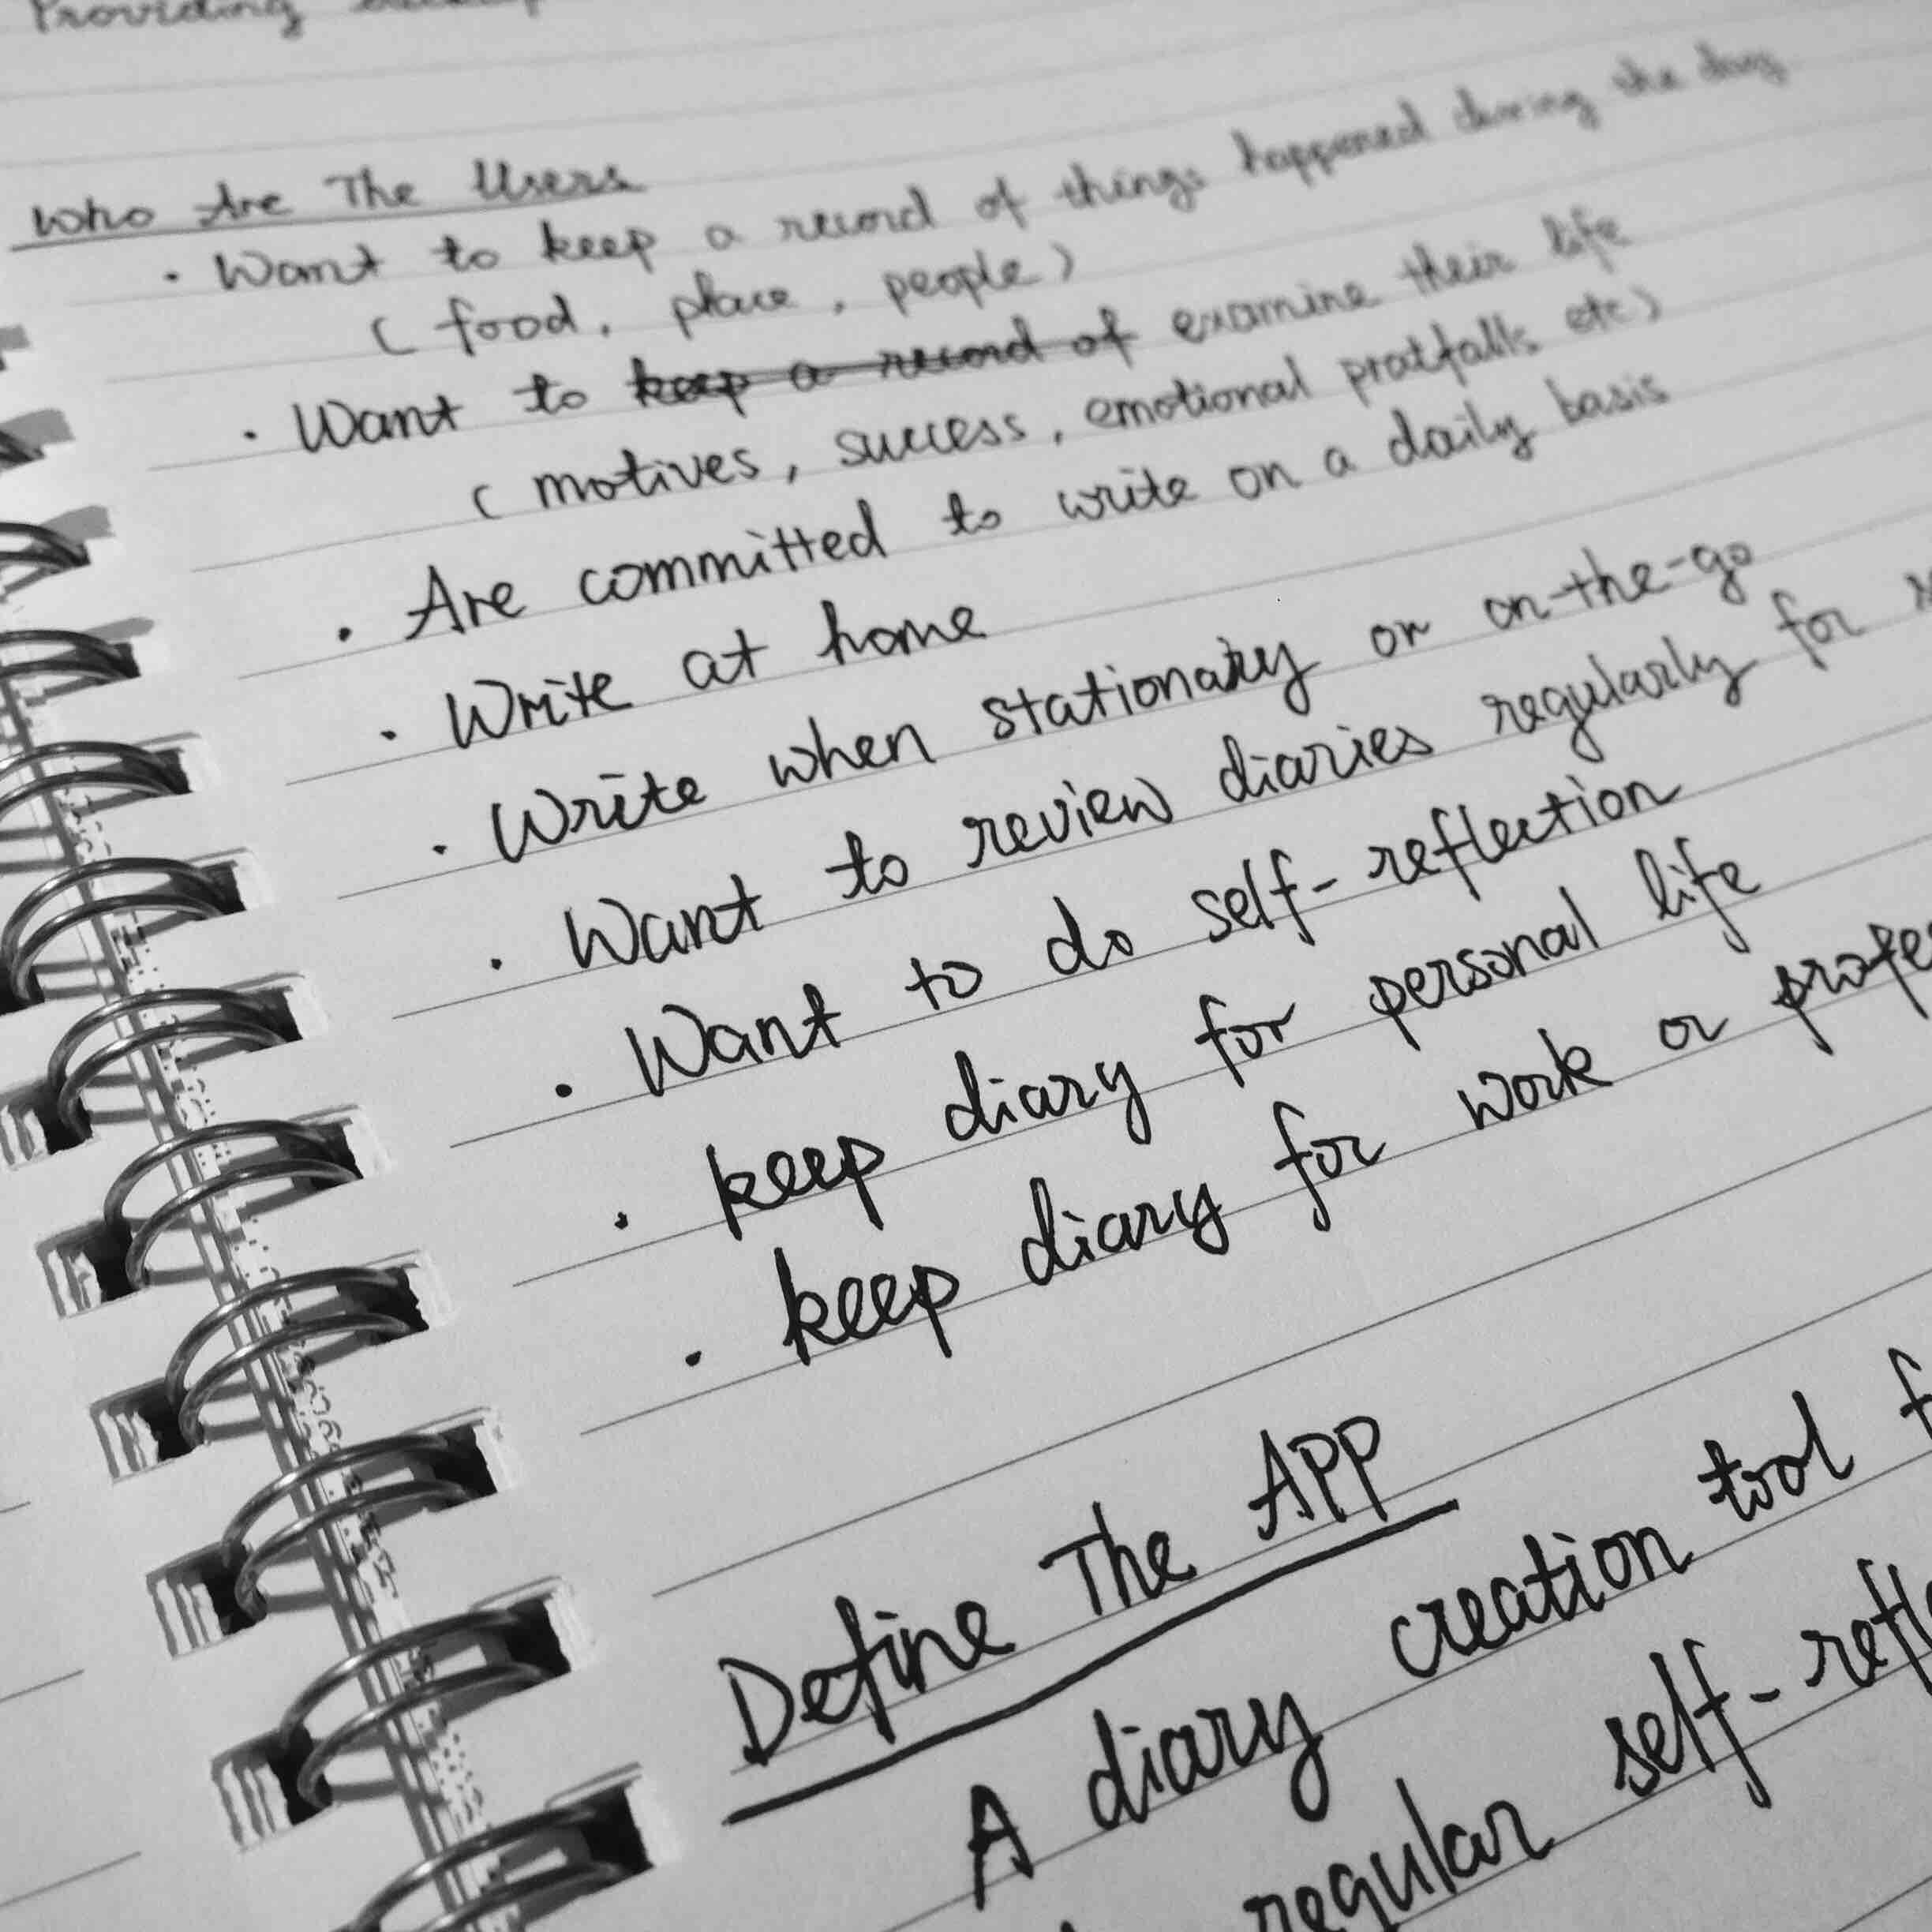 Providing
Who Are The Users
· Want to keep a record of things happened during the day
( food, place, people)
· Want to keep a record of examine their life
( motives, success, emotional pratfalls etc)
· Are committed to write on a daily basis
· Write at home
· Write when stationary or on-the-go
· Want to review diaries regularly for
· Want to do self-reflection
· keep diary for personal life
· keep diary for work or profes
Define The APP
A diary creation tool f
regular self-refle